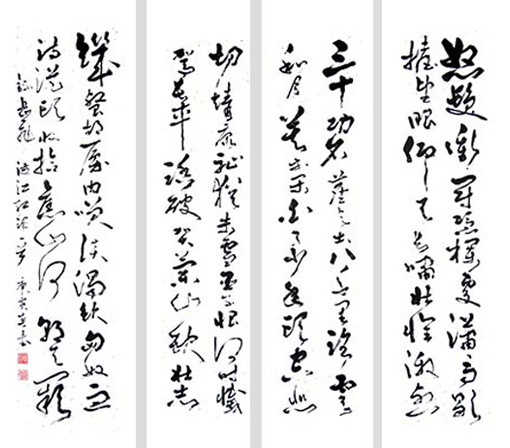 怒髮衝冠憑欄處瀟瀟雨歇
抬望眼仰天長嘯壯懷激烈
三十功名塵與土八千里路雲
和月莫等閒白了少年頭空悲
切靖康恥猶未雪臣子恨何時滅
駕長車踏破賀蘭山缺壯志
飢餐胡虜肉笑談渴飲匈奴血
待從頭收拾舊山河朝天闕
錄岳飛滿江紅詞